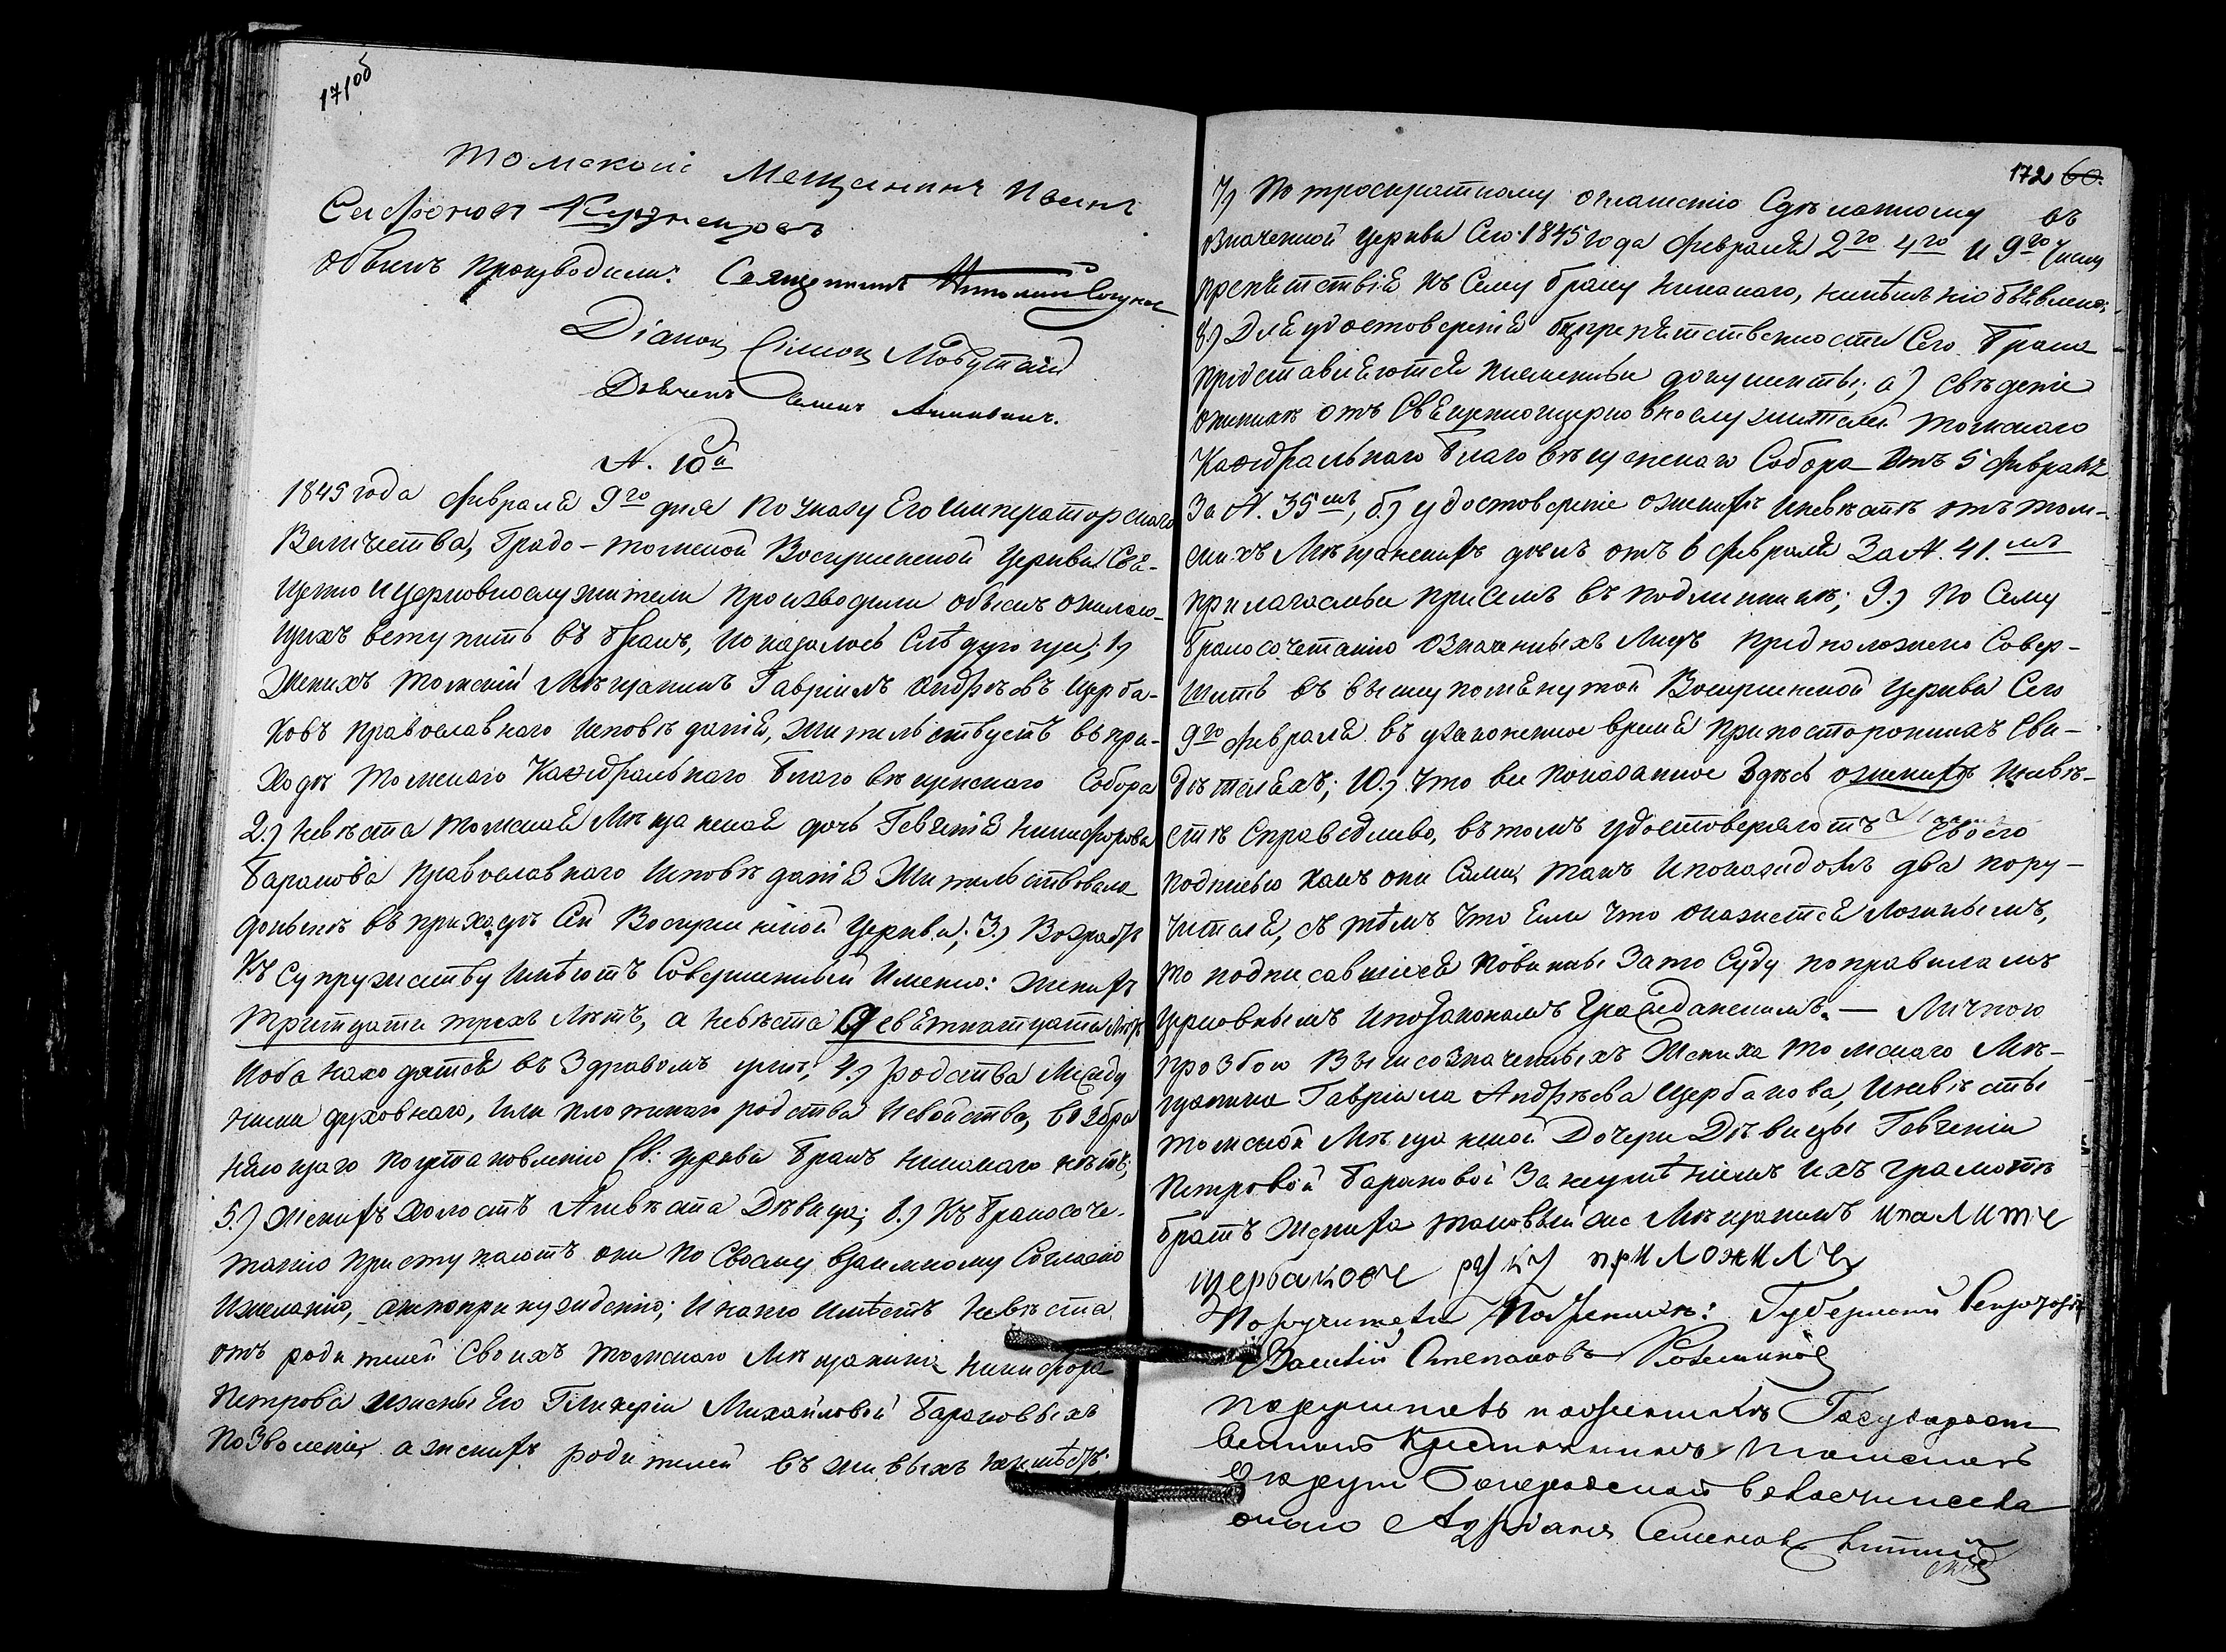 171об
Томской Мещанинъ Иванъ
Сафоновъ
Обыскъ производили: Священникъ
Діаконъ Симонъ
Дьячекъ
№. 10й
1845 года Февраля 9го дня По указу Его Императорскаго
Величества, Градо-Томской Воскресенской Церкви Свя-
щенно и церковнослужители производили обыскъ о желаю-
щихъ вступить въ бракъ, и оказалось слѣдующее; 1.)
Женихъ Томскій Мѣщанинъ Гавріилъ Андрѣевъ Щерба-
ковъ православнаго исповѣданія, жительствуетъ въ при-
ходѣ Томскаго Кафедральнаго Благовѣщенскаго Собора
2.) Невѣста Томская Мѣщанская дочь Гевгенія Никифорова
Баранова православнаго исповѣданія жительствовала
донынѣ въ приходѣ сей Воскресенской Церкви; 3.) Возрастъ
къ супружеству имѣютъ совершенный именно: женихъ
тритцати трехъ лѣтъ, а невѣста девятнатцати лѣтъ
и оба находятся въ здравомъ умѣ; 4.) родства между
ними духовнаго, или плотскаго родства и свойства, возбра
няющаго по установленію Св: церкви бракъ никакого нѣтъ;
5.) Женихъ холостъ а невѣста дѣвица; 6.) Къ бракосоче-
танію приступаютъ они по своему взаимному согласію
и желанію, а не по принужденію; и на то имѣетъ невѣста
отъ родителей своихъ Томскаго Мѣщанина Никифора
Петрова и жены его Гликеріи Михайловой Барановыхъ
позволеніе, а женихъ родителей въ живыхъ не имѣетъ;
172 60.
7.) По троекратному оглашенію сдѣланному въ
означенной церкви сего 1845 года февраля 2го 4го и 9го числъ
препятствія къ сему браку никакого, никѣмъ не объявлено;
8.) Для удостовѣренія безпрепятственности сего брака
представляются письменные документы; а.) свѣденіе
о женихѣ отъ священноцерковнослужителей Томскаго
Кафедральнаго Благовѣщенскаго Собора отъ 5 февраля
за №. 35мъ, б.) удостовереніе о женихѣ и невѣстѣ изъ Том-
скихъ Мѣщанскихъ отъ 6 февраля за №. 41.мъ
прилагаемые при семъ въ подлинникѣ; 9.) По сему
бракосочетаніе означенныхъ лицъ предположено совер-
шить въ вышеупомянутой Воскресенской Церкви сего
9го февраля въ узаконенное время при постороннихъ сви-
дѣтеляхъ; 10.) Что все показанное здѣсь о женихѣ и невѣ-
стѣ справедливо, въ томъ удостоверяютъ своего
подписью какъ они сами, такъ и по каждомъ два пору-
чителя, съ тѣмъ что если что окажется ложнымъ,
то подписавшіеся повинны за то суду по правиламъ
церковнымъ и по законамъ гражданскимъ. — Личною
прозбою вышеозначенныхъ жениха Томскаго Мѣ-
щанина Гавріила Андрѣева Щербакова, и невѣсты
Томской Мѣщанской дочери дѣвицы Гевгеніи
Петровой Барановой за неумѣніемъ ихъ грамотѣ
братъ жениха таковый же Мѣщанинъ ипалитъ
щербаковъ руку приложилъ
Поручители По женихѣ: Губернскій Секретарь
Василій Степановъ
поручитель по женихѣ Государст
венный Крестьянинъ Томскаго
Округи Богородской волости села
Адріанъ Семеновъ